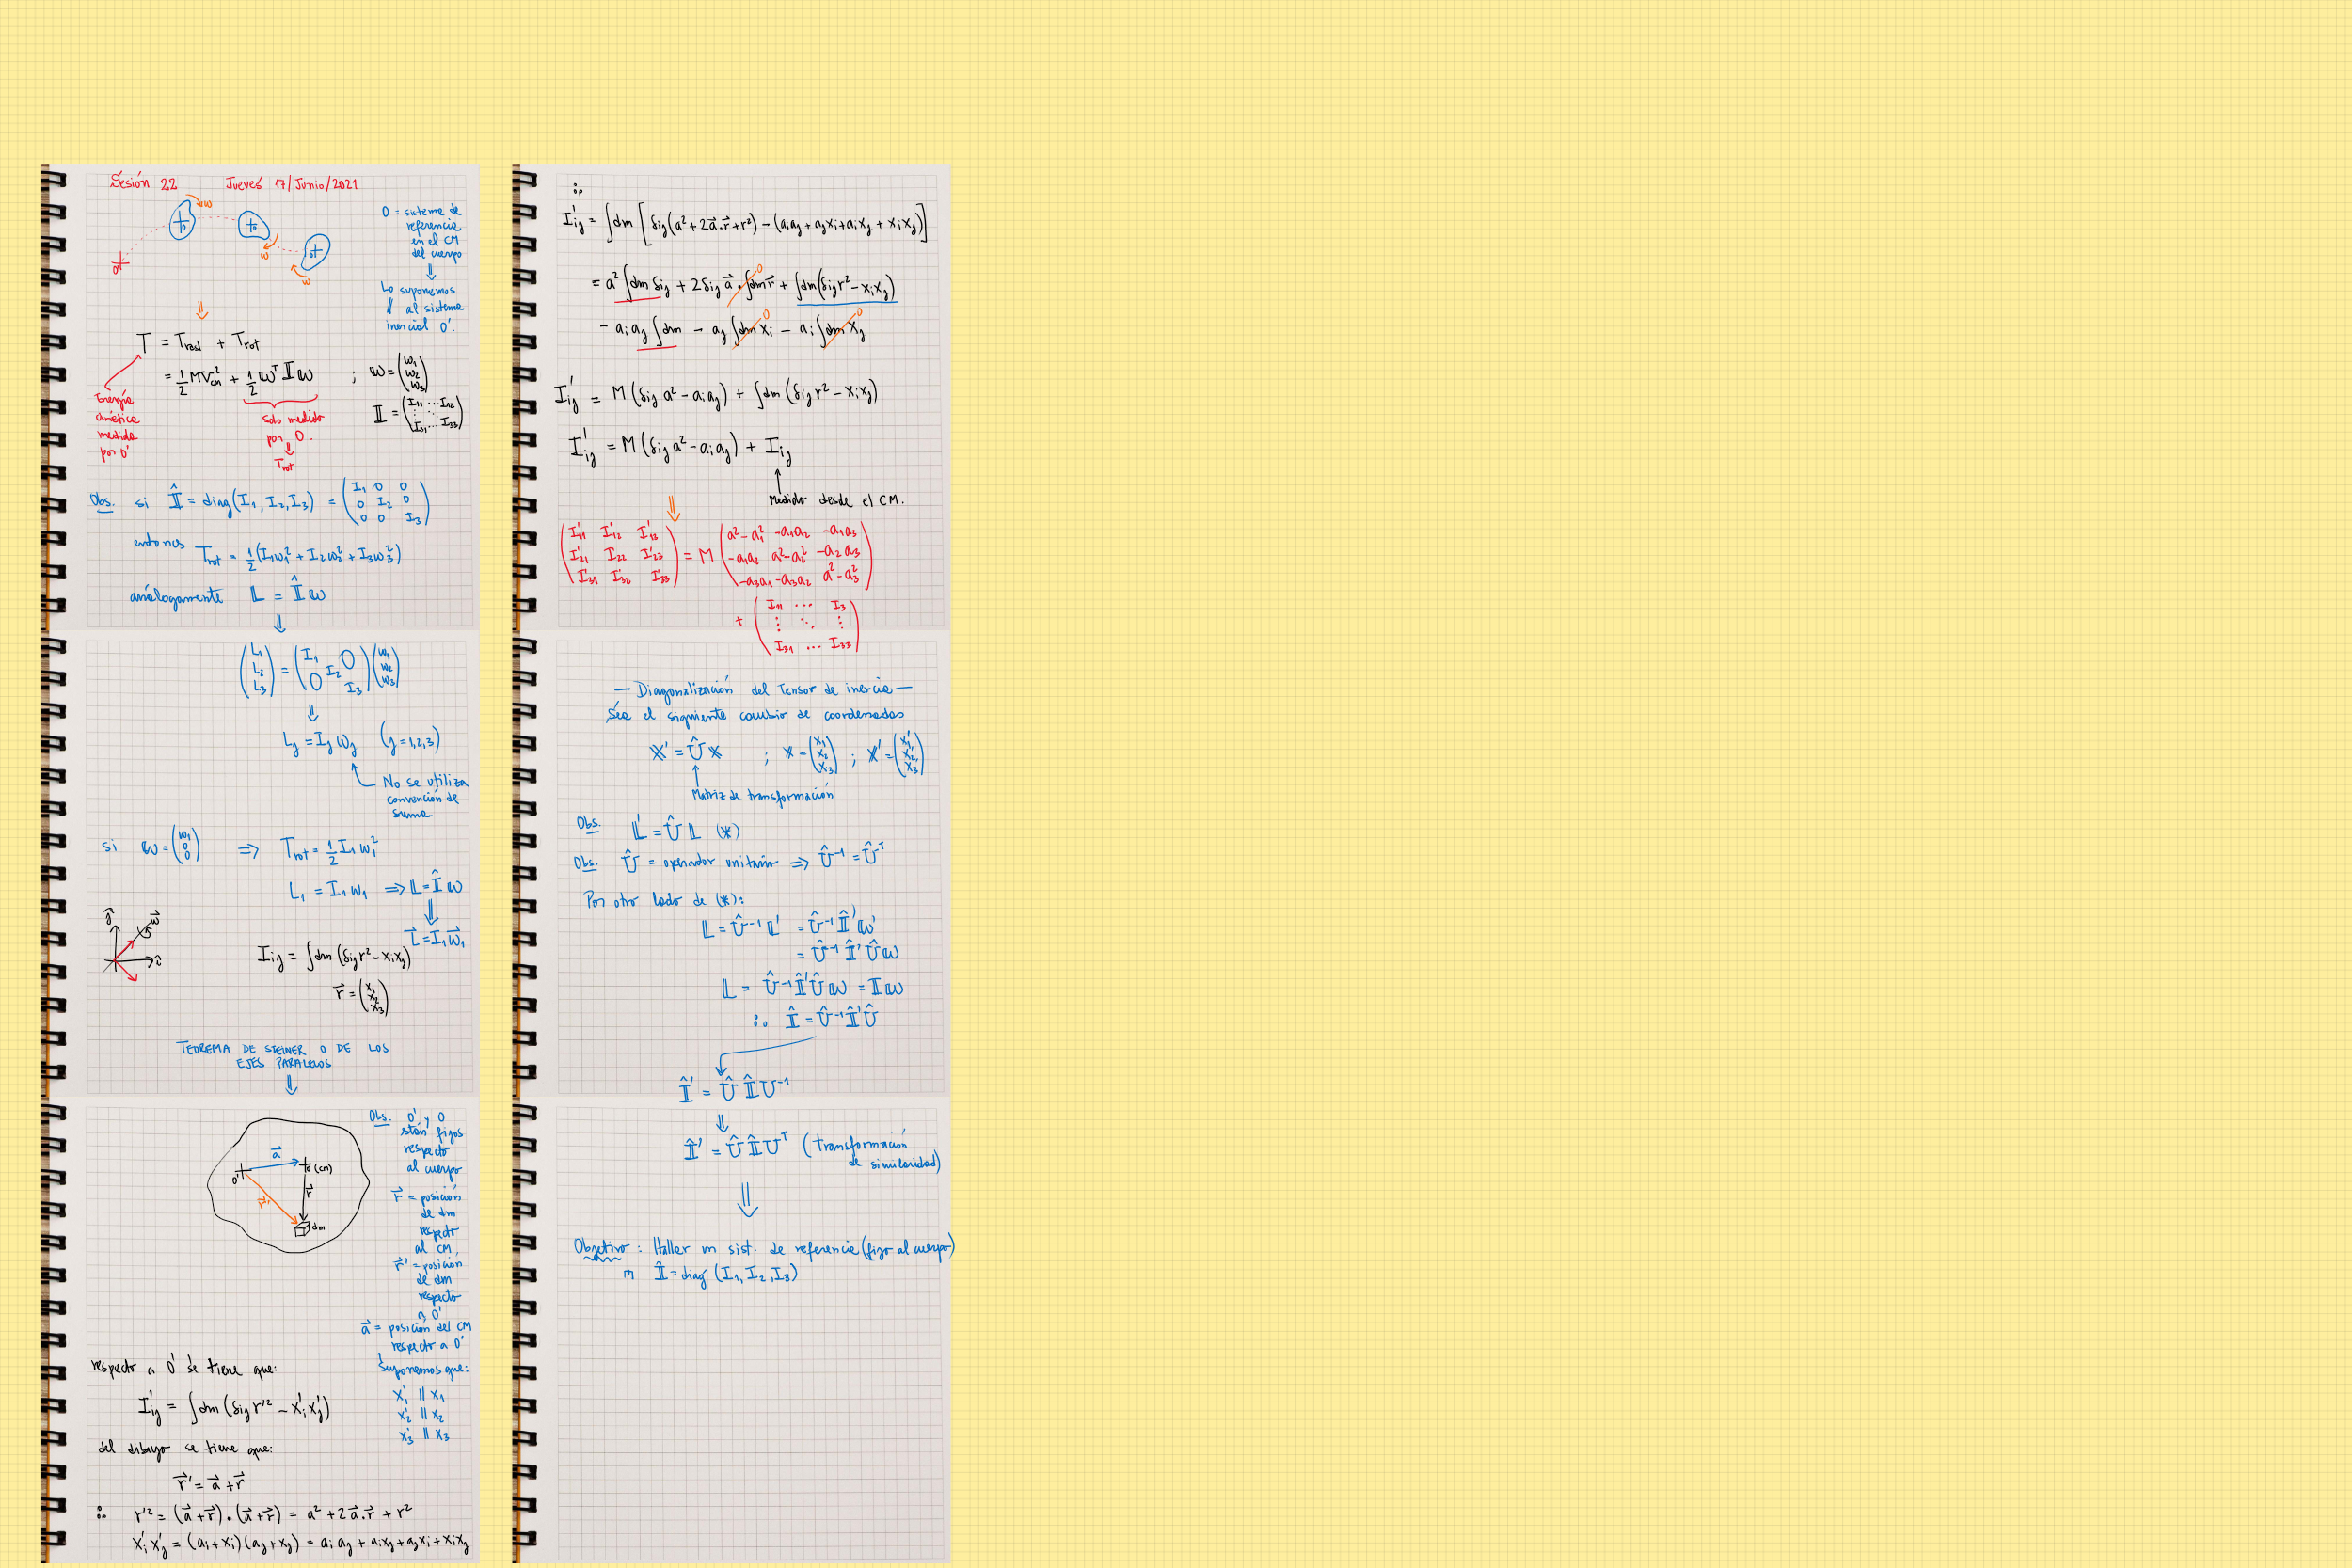 Sesión 22 Jueves 17/Junio/2021
ω
O
O' O
ω
O
ω
O = sistema de
referencia
en el CM
del cuerpo
⇓
Lo suponemos
∥ al sistema
inercial O'.
⇓
T = Trasl + Trot
= 1/2 MV²cm + 1/2 ωᵀ 𝕀 ω ; ω = (ω1 ω2 ω3)
Energía
cinética
medida
por O'
solo medida
por O.
⇓
Trot
𝕀 = (I11 ... I12 ⋮ ⋱ ⋮ I31 ... I33)
Obs. si 𝕀̂ = diag(I1, I2, I3) = (I1 0 0 0 I2 0 0 0 I3)
entonces Trot = 1/2 (I1ω1² + I2ω2² + I3ω3²)
análogamente 𝕃 = 𝕀̂ ω
⇓
(L1 L2 L3) = (I1 0 I2 0 I3)(ω1 ω2 ω3)
⇓
Lj = Ij ωj (j = 1,2,3)
No se utiliza
convención de
suma
si ω = (ω1 0 0) ⇒ Trot = 1/2 I1 ω1²
L1 = I1 ω1 ⇒ 𝕃 = 𝕀̂ ω
⇓
L⃗ = I1 ω⃗1
ĵ ω⃗ î
Iij = ∫dm (δij r² − xixj)
r⃗ = (x1 x2 x3)
TEOREMA DE STEINER O DE LOS
EJES PARALELOS
⇓
a⃗
O' O (CM)
r⃗
r⃗'
dm
Obs. O' y O
están fijos
respecto
al cuerpo
r⃗ = posición
de dm
respecto
al CM,
r⃗' = posición
de dm
respecto
a O'
a⃗ = posición del CM
respecto a O'
Suponemos que:
x'1 ∥ x1
x'2 ∥ x2
x'3 ∥ x3
respecto a O' se tiene que:
I'ij = ∫dm (δij r'² − x'ix'j)
del dibujo se tiene que:
r⃗' = a⃗ + r⃗
∴ r'² = (a⃗ + r⃗)·(a⃗ + r⃗) = a² + 2a⃗·r⃗ + r²
x'ix'j = (ai + xi)(aj + xj) = aiaj + aixj + ajxi + xixj
∴
I'ij = ∫dm [δij(a² + 2a⃗·r⃗ + r²) − (aiaj + ajxi + aixj + xixj)]
= a² ∫dm δij + 2δij a⃗·∫dm r⃗ 0 + ∫dm(δij r² − xixj)
− aiaj ∫dm − aj ∫dm xi 0 − ai ∫dm xj 0
I'ij = M (δij a² − aiaj) + ∫dm (δij r² − xixj)
I'ij = M (δij a² − aiaj) + Iij
Medido desde el CM.
⇓
(I'11 I'12 I'13 I'21 I'22 I'23 I'31 I'32 I'33) = M (a²−a1² −a1a2 −a1a3 −a1a2 a²−a2² −a2a3 −a3a1 −a3a2 a²−a3²)
+ (I11 ... I3 ⋮ ⋱ ⋮ I31 ... I33)
— Diagonalización del Tensor de inercia —
Sea el siguiente cambio de coordenadas
𝕩' = Û 𝕩 ; 𝕩 = (x1 x2 x3) ; 𝕩' = (x'1 x'2 x'3)
Matriz de transformación
Obs. 𝕃' = Û 𝕃 (*)
Obs. Û = operador unitario ⇒ Û⁻¹ = Ûᵀ
Por otro lado de (*):
𝕃 = Û⁻¹ 𝕃' = Û⁻¹ 𝕀̂' ω'
= Û⁻¹ 𝕀̂' Û ω
𝕃 = Û⁻¹ 𝕀̂' Û ω = 𝕀 ω
∴ 𝕀̂ = Û⁻¹ 𝕀̂' Û
𝕀̂' = Û 𝕀̂ U⁻¹
⇓
𝕀̂' = Û 𝕀̂ Uᵀ (transformación
de similaridad)
⇓
Objetivo: Hallar un sist. de referencia (fijo al cuerpo)
∋ 𝕀̂ = diag (I1, I2, I3)